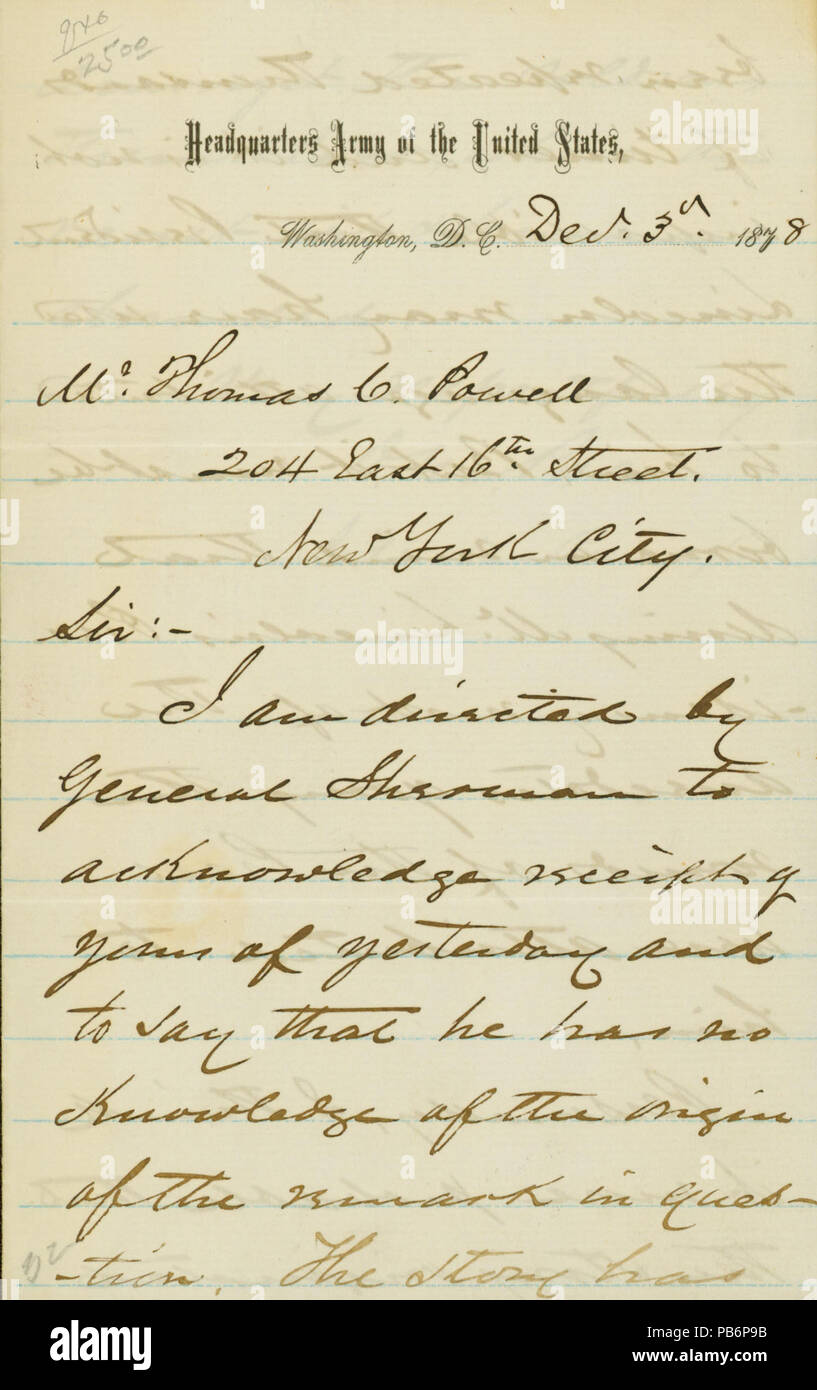 940
2500
Headquarters Army of the United States,
Washington, D.C. Dec. 3d. 1878
Mr. Thomas C. Powell
204 East 16th. Street.
New York City.
Sir:-
I am directed by
General Sherman to
acknowledge receipt of
yours of yesterday and
to say that he has no
Knowledge of the origin
of the remark in ques-
-tion. The story has
alamy
Image ID: PB6P9B
www.alamy.com